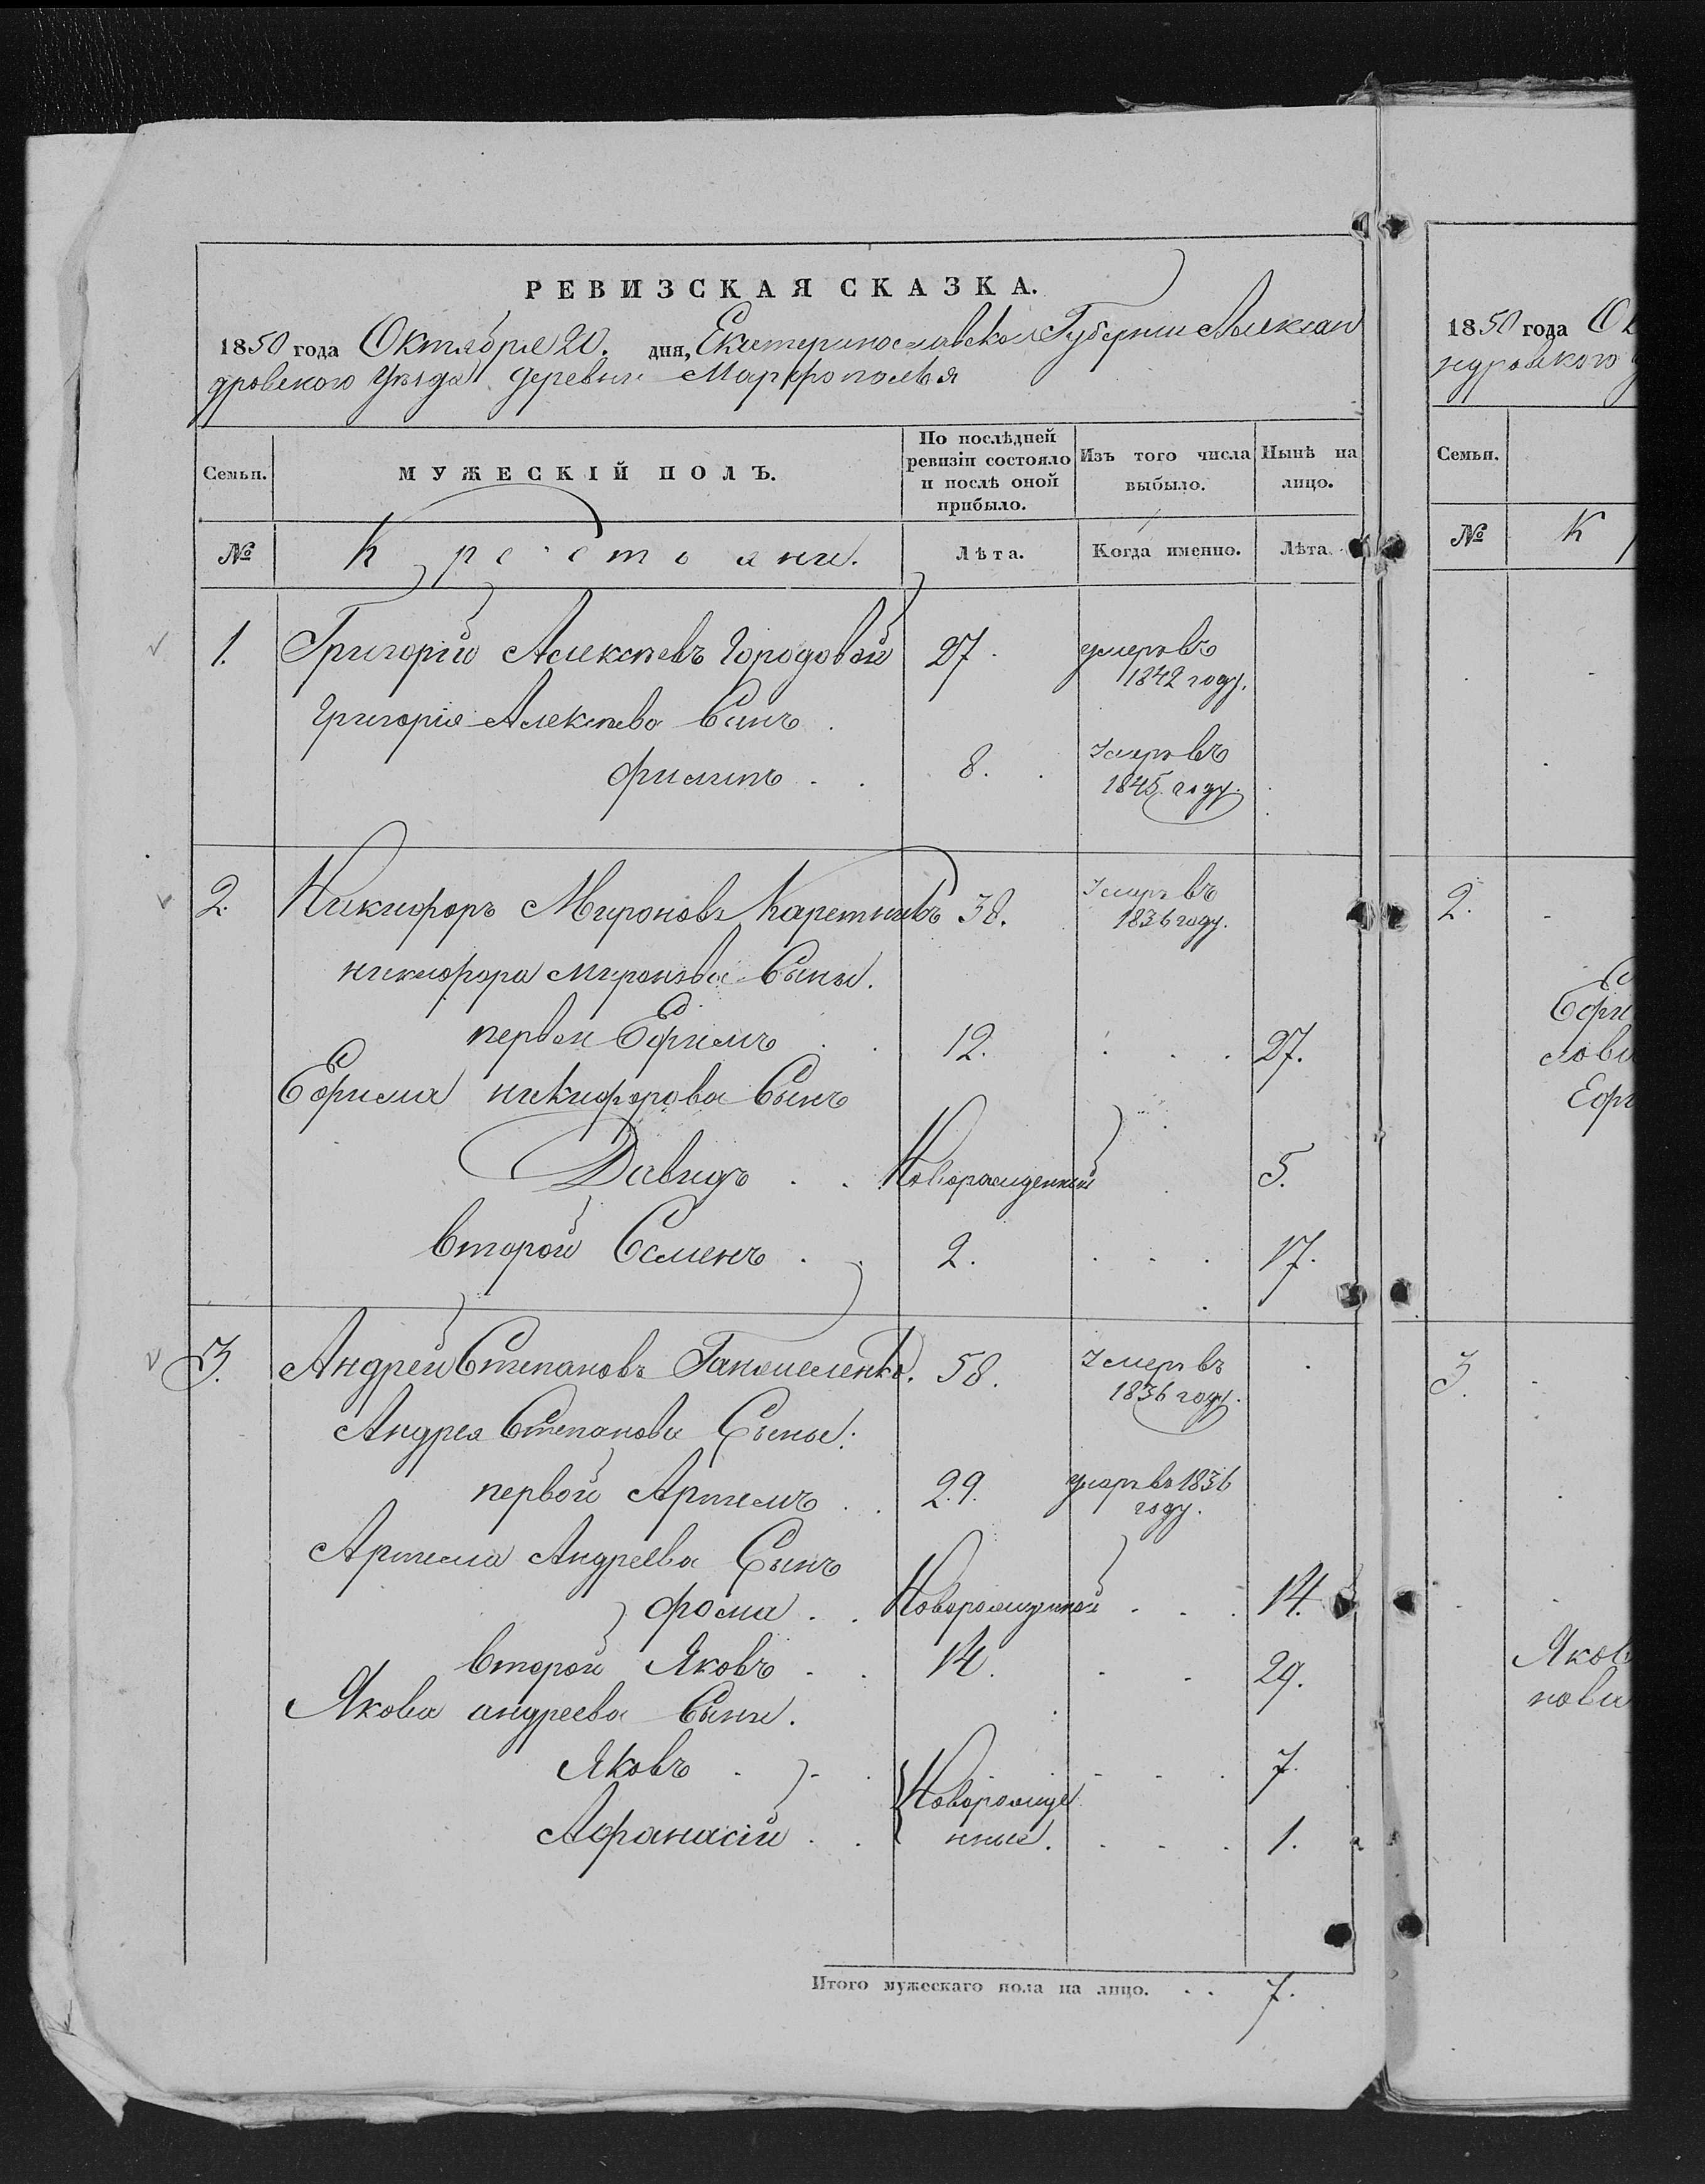 РЕВИЗСКАЯ СКАЗКА.
1850 года Октября 20. дня, Екатеринославской Губернии Алексан
дровского уѣзда деревни Марфополья
Семьи.
МУЖЕСКІЙ ПОЛЪ.
По послѣдней ревизіи состояло и послѣ оной прибыло.
Изъ того числа выбыло.
Нынѣ на лицо.
№
Крестьяне.
Лѣта.
Когда именно.
Лѣта.
1. Григорій Алексѣевъ Городовой 27. умеръ въ
1842 году.
Григорія Алексѣева Сынъ
Филипъ . . 8. умеръ въ
1845 году.
2. Никифоръ Мироновъ Каретникъ 38. умеръ въ
1836 году.
никифора миронова Сыны.
первой Ефимъ 12. . . . 27.
Ефима никифорова Сынъ
Давидъ . . Новорожденный 5.
второй Семенъ . . 2. . . . 17.
3. Андрей Степановъ 58. умеръ въ
1836 году.
Андрея Степанова Сыны:
первой Артемъ . . 29. умеръ въ 1836
году.
Артема Андреева Сынъ
фома . . Новорожденной . . . 14.
второй Яковъ . . 14. . . 29.
Якова андреева Сыны.
Яковъ . . . Новорожде . . . 7.
Афранасій . . нные. . . . 1.
Итого мужескаго пола на лицо. . . 7.
1850 года Ок
ндровского у
Семьи.
№
К
2.
Ефи
лови
Ефи
3.
Яков
нова